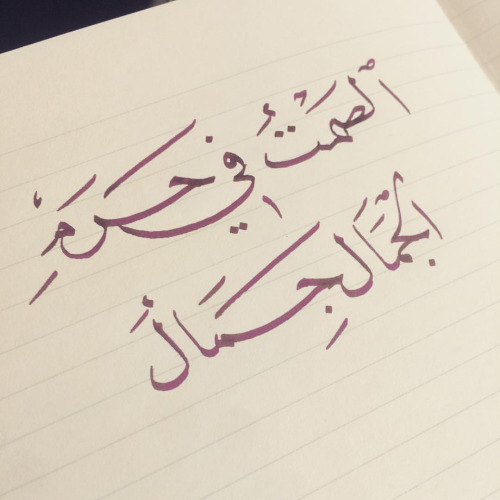 الصمتُ في حرمِ
الجمالِ جمالُ